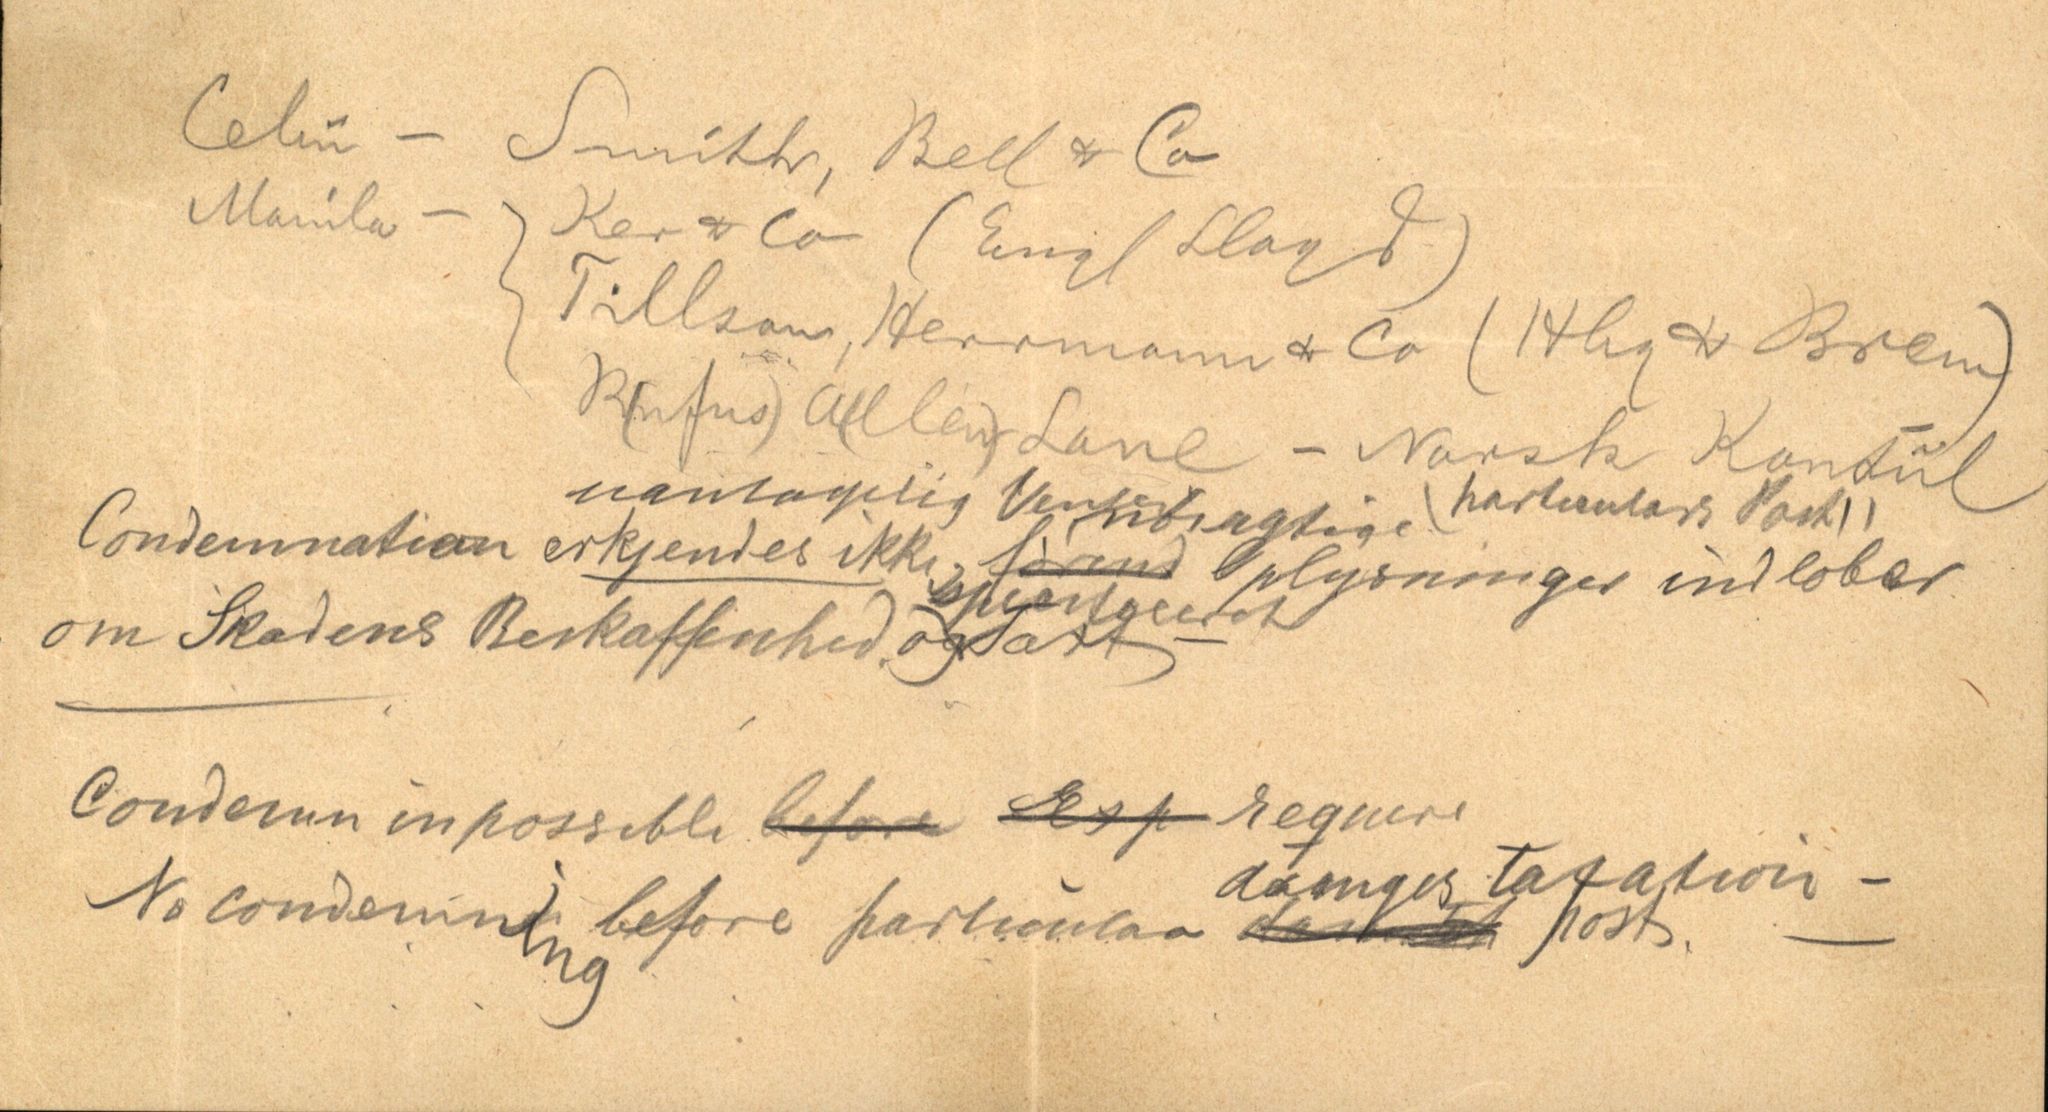 Cebú - Smith, Bell & Co
Manila - Ker & Co (Engl Lloyd)
Tillson, Herrmann & Co (Hbg & Brem)
R(ufus) A(llen) Lane - Norsk Konsül
uantagelig particulars Post
Condemnation erkjendes ikke, førend Oplysninger indløber
om Skadens Beskaffenhed og Taxt -
Condemn impossible before Esp require
damages Taxation -
No condemning before particular post.